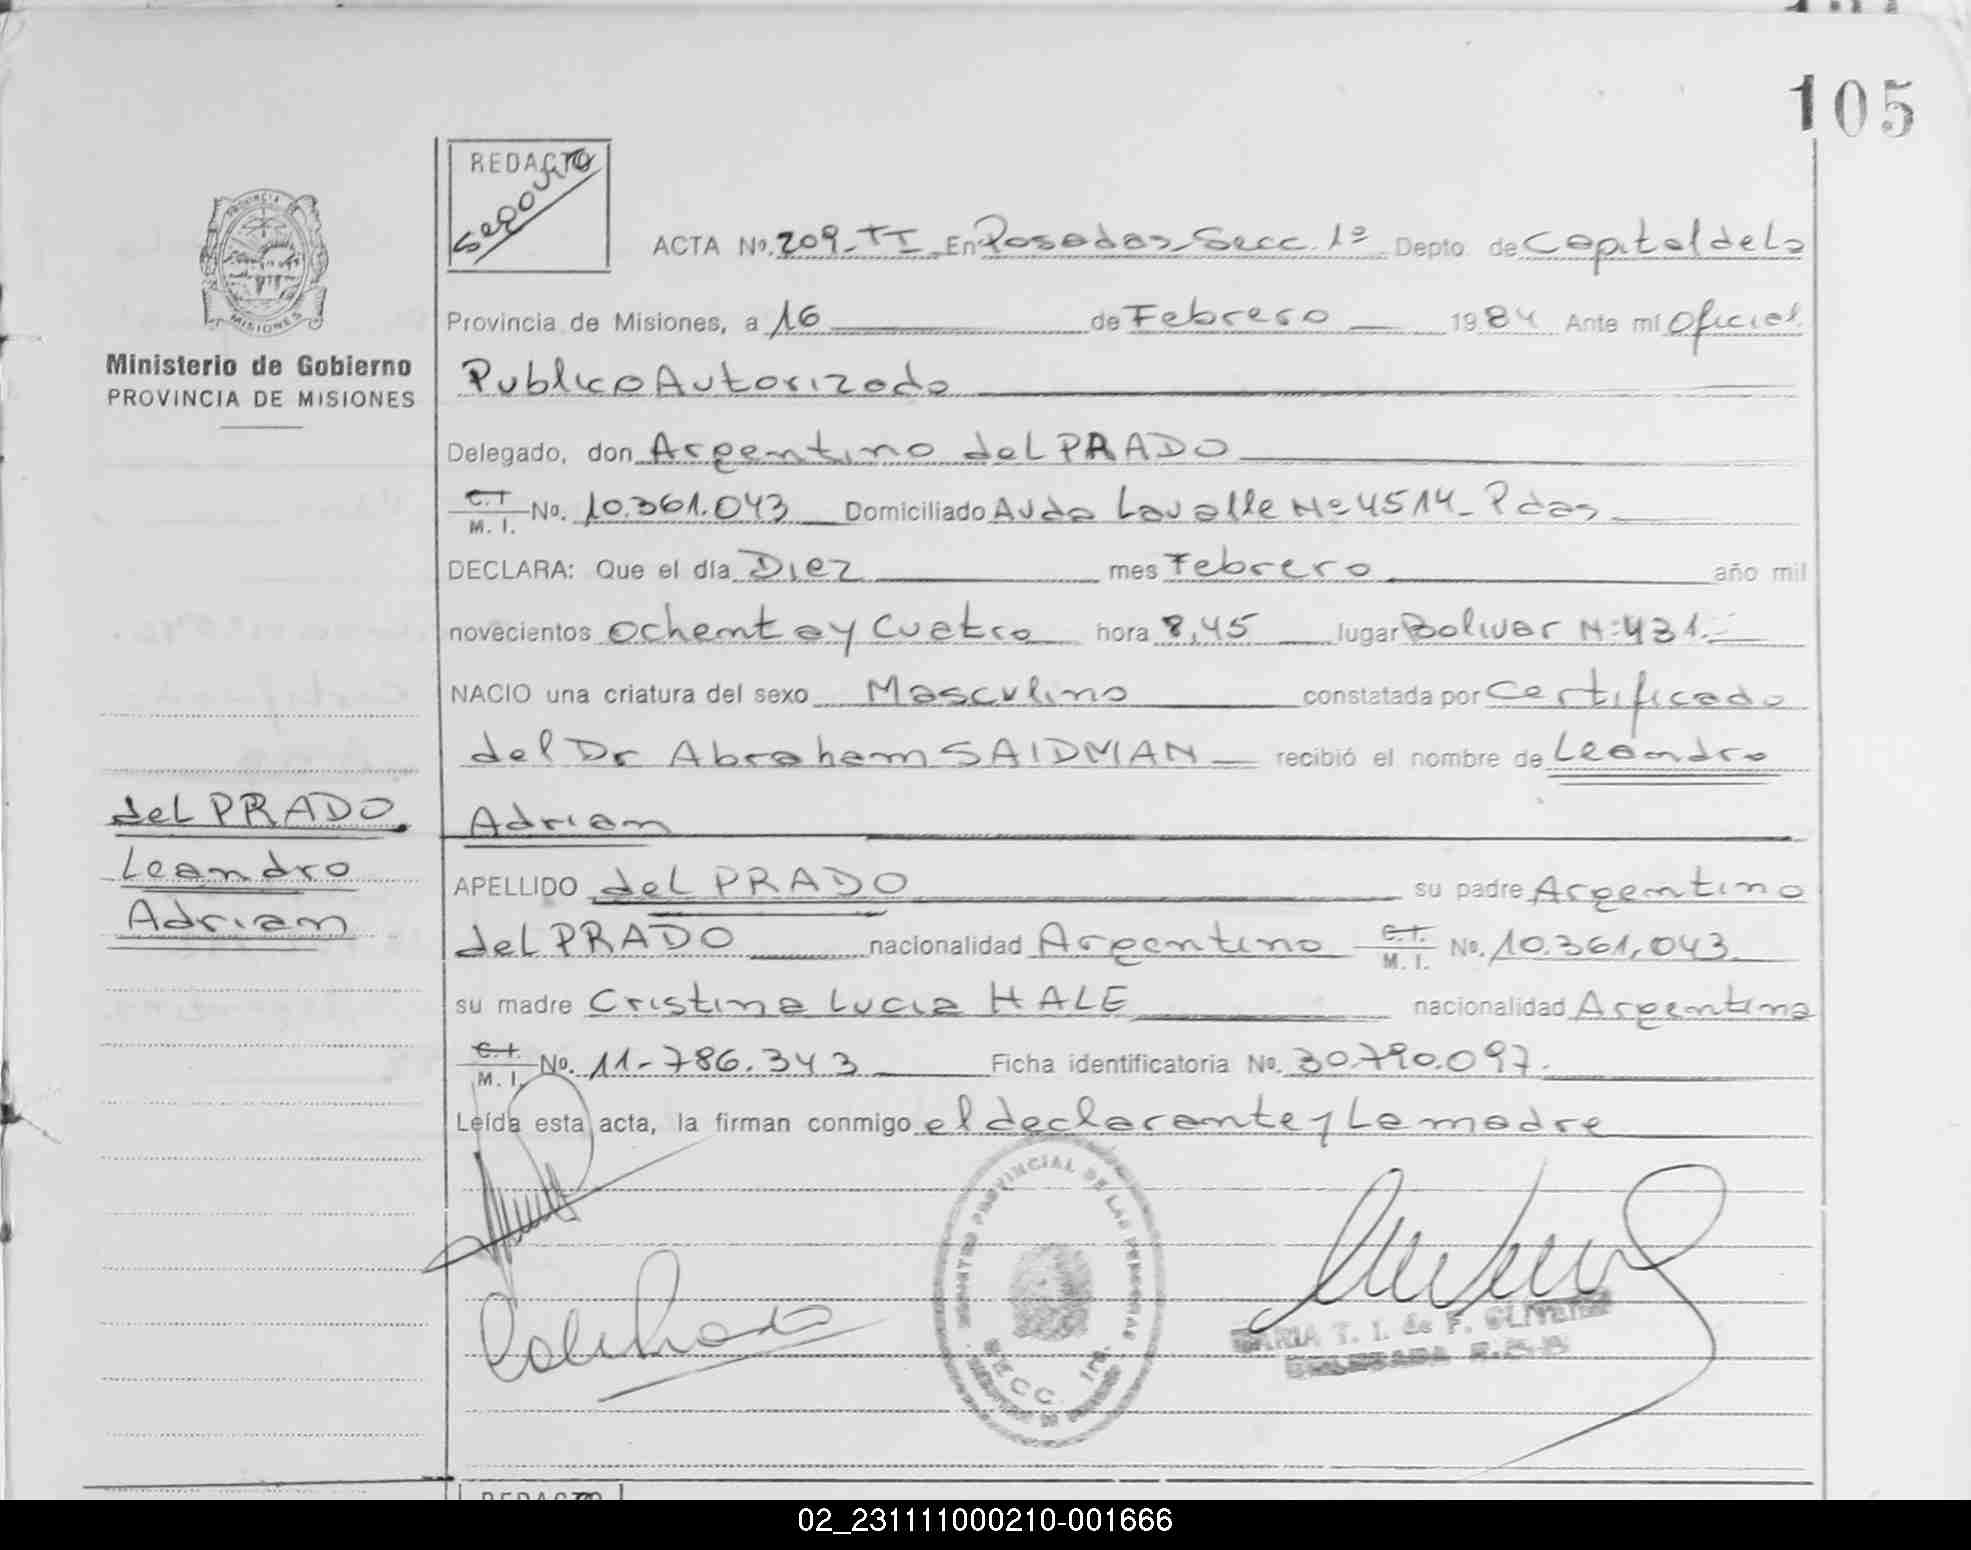 105
REDACTO
PROVINCIA DE
MISIONES
Ministerio de Gobierno
PROVINCIA DE MISIONES
ACTA No. 209-TI En Posadas Secc. 1ª Depto. de Capital de la
Provincia de Misiones, a 16 de Febrero 1984 Ante mí Oficial
Publico Autorizado
Delegado, don Argentino del PRADO
C.I. M. I. No. 10.361.043 Domiciliado Avda Lavalle Nº 4514- Pdas
DECLARA: Que el día Diez mes Febrero año mil
novecientos ochenta y cuatro hora 8,45 lugar Bolivar Nº 431.
NACIO una criatura del sexo Masculino constatada por Certificado
del Dr Abraham SAIDMAN recibió el nombre de Leandro
Adrian
del PRADO
Leandro
Adrian
APELLIDO del PRADO su padre Argentino
del PRADO nacionalidad Argentino C.I. M. I. No. 10.361.043
su madre Cristina Lucia HALE nacionalidad Argentina
C.I. M. I. No. 11-786.343 Ficha identificatoria No. 30.790.097.
Leída esta acta, la firman conmigo el declarante y la madre
PROVINCIAL DE LAS PERSONAS
SECC. 1ra.
MARIA T. I. de F. OLIVERA
REDACTO
02_231111000210-001666